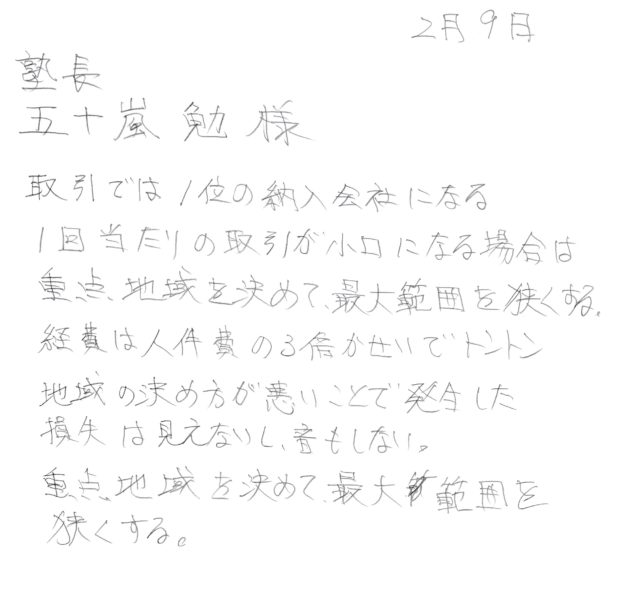 2月9日
塾長
五十嵐 勉 様
取引では1位の納入会社になる
1回当たりの取引が小口になる場合は
重点地域を決めて、最大範囲を狭くする。
経費は人件費の3倍かせいでトントン
地域の決め方が悪いことで発生した
損失は見えないし、音もしない。
重点地域を決めて、最大範囲を
狭くする。